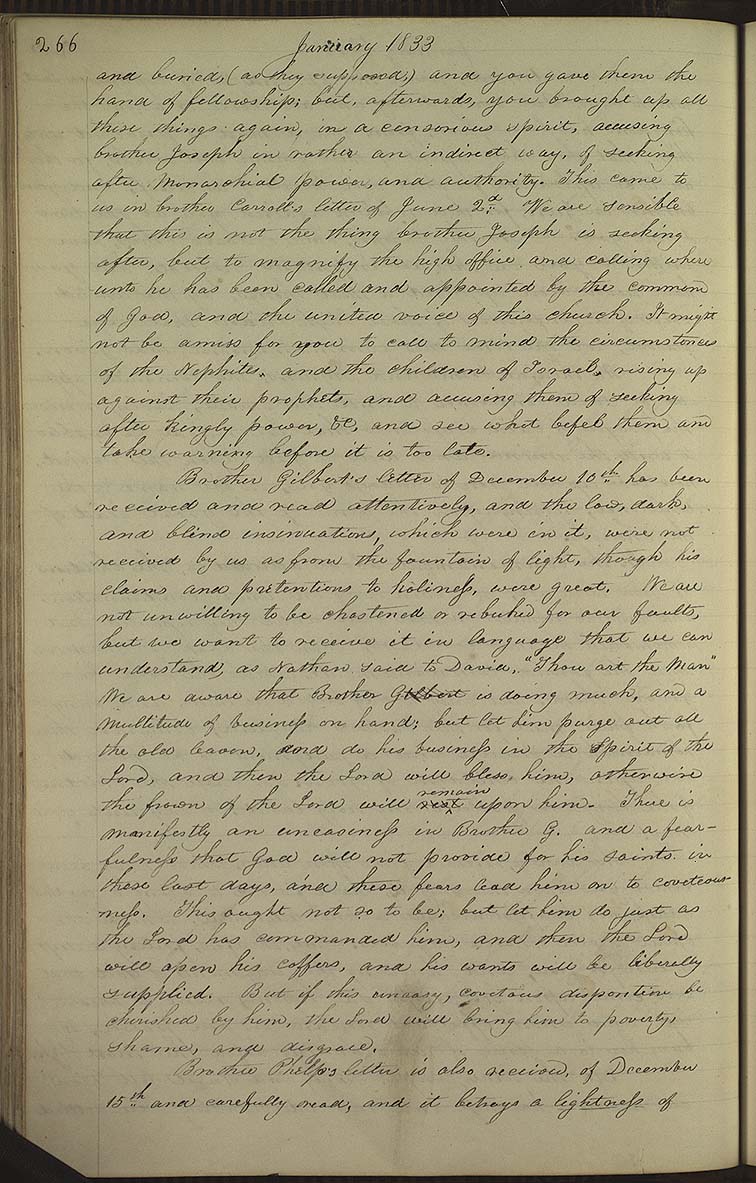 266 January 1833
and buried, (as they supposed;) and you gave them the
hand of fellowship; but, afterwards, you brought up all
these things again, in a censorious spirit, accusing
brother Joseph in rather an indirect way, of seeking
after Monarchial power, and authority. This came to
us in brother Carroll's letter of June 2d. We are sensible
that this is not the thing brother Joseph is seeking
after, but to magnify the high office and calling where
unto he has been called and appointed by the command
of God, and the united voice of this church. It might
not be amiss for you to call to mind the circumstances
of the Nephites, and the children of Israel, rising up
against their prophets, and accusing them of seeking
after kingly power, &c, and see what befel them and
take warning before it is too late.
Brother Gilbert's letter of December 10th has been
received and read attentively, and the low, dark,
and blind insinuations, which were in it, were not
received by us as from the fountain of light, though his
claims and pretentions to holiness, were great. We are
not unwilling to be chastened or rebuked for our faults,
but we want to receive it in language that we can
understand, as Nathan said to David, "Thou art the Man"
We are aware that Brother Gilbert is doing much, and a
multitude of business on hand; but let him purge out all
the old leaven, and do his business in the Spirit of the
Lord, and then the Lord will bless him, otherwise
remain
the frown of the Lord will rest upon him. There is
manifestly an uneasiness in Brother G. and a fear-
fulness that God will not provide for his saints in
these last days, and these fears lead him on to coveteous-
ness. This ought not so to be; but let him do just as
the Lord has commanded him, and then the Lord
will open his coffers, and his wants will be liberally
supplied. But if this uneasy, covetous disposition be
cherished by him, the Lord will bring him to poverty,
shame, and disgrace.
Brother Phelp's letter is also received, of December
15th and carefully read, and it betrays a lightness of